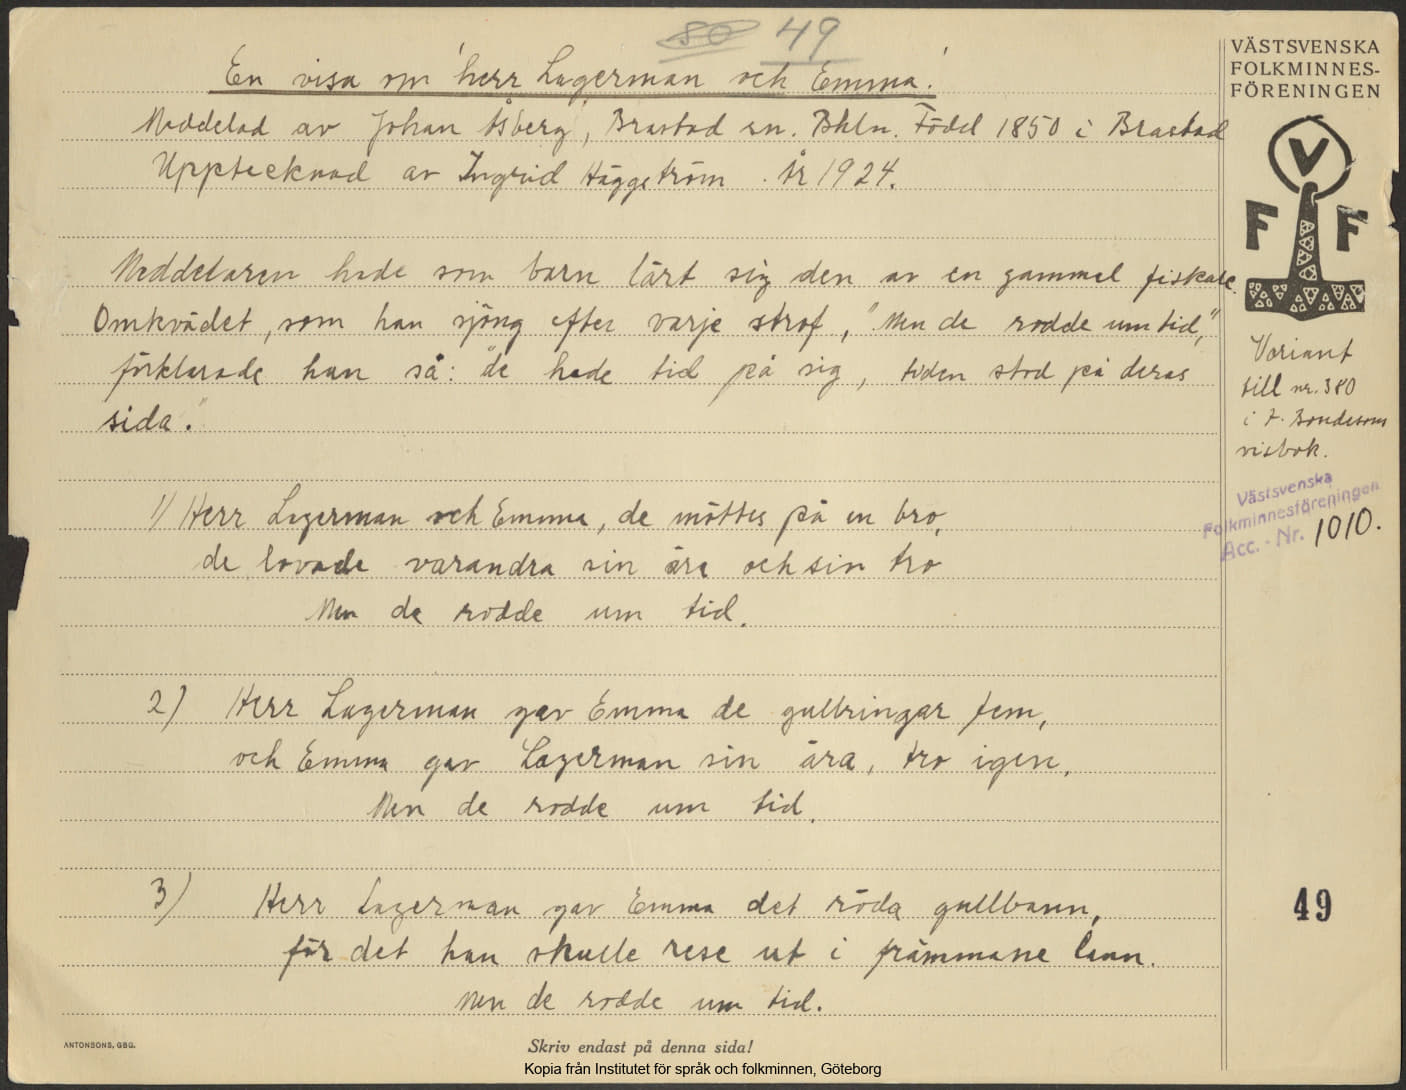 80 49
En visa om 'herr Lagerman och Emma.'
Meddelad av Johan Åsberg, Brastad sn. Bhln. Född 1850 i Brastad
Upptecknad av Ingrid Häggström. År 1924.
Meddelaren hade som barn lärt sig den av en gammal fiskare.
Omkvädet, som han sjöng efter varje strof, "Men de rodde um tid,"
förklarade han så: "de hade tid på sig, tiden stod på deras
sida."
1) Herr Lagerman och Emma, de möttes på en bro,
de lovade varandra sin ära och sin tro
Men de rodde um tid.
2) Herr Lagerman gav Emma de gullringar fem,
och Emma gav Lagerman sin ära, tro igen.
Men de rodde um tid.
3) Herr Lagerman gav Emma det röda gullbann,
för det han skulle rese ut i främmane lann.
Men de rodde um tid.
VÄSTSVENSKA
FOLKMINNES-
FÖRENINGEN
V
F F
Variant
till nr. 380
i F. Bondesons
visbok.
Västsvenska
Folkminnesföreningen
Acc. - Nr. 1010.
49
ANTONSONS, GBG.
Skriv endast på denna sida!
Kopia från Institutet för språk och folkminnen, Göteborg